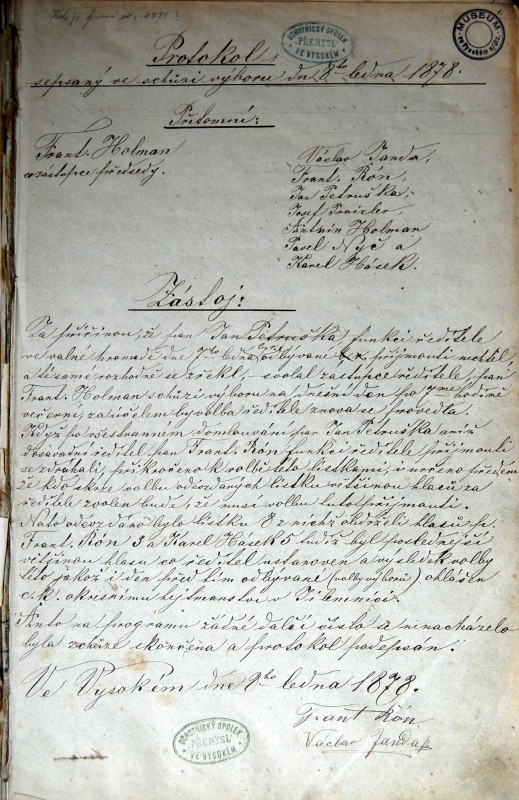 Protokol
sepsaný ve schůzi výboru dn 8ho ledna 1878.
OCHOTNICKÝ SPOLEK
PŘEMYSL
VE VYSOKÉM
MUSEUM
Přítomni:
Frant. Holman
co zástupce předsedy.
Václav Janda,
Frant. Rón,
Jan Petruška,
Josef Praizler,
Antonín Holman
Pavel Nyč a
Karel Hásek.
Zástoj:
Za příčinou, že pan Jan Petruška funkci ředitele
ve valné hromadě dne 7ho ledna odbývané přijmouti nechtěl,
a té samé rozhodně se zřekl, svolal zástupce ředitele, pan
Frant. Holman schůzi výboru na dnešní den po 7mé hodině
večerní, za účelem by volba ředitele znova se provedla.
Když po všestranném domlouvání pan Jan Petruška aniž
dosavadní ředitel pan Frant. Rón funkci ředitele přijmouti
se zdráhali, přikročeno k volbě této lístkami, i určeno předem
že kdo skrze volbu odevzdaných lístků většinou hlasů za
ředitele zvolen bude, že musí volbu tuto přijmouti.
Na to odevzdáno bylo lístků 8 z nichž obdrželi hlasů p.
Frant. Rón 3 a Karel Hásek 5 tudíž byl poslednější
většinou hlasů co ředitel ustanoven a výsledek volby
této jakož i den před tím odbývané (volby výboru) ohlášen
c. k. okresnímu hejtmanství v Jilemnici.
Anto na programu žádné další číslo se nenacházelo
byla schůze skončena a protokol podepsán.
Ve Vysokém dne 8ho ledna 1878.
Frant Rón
Václav Janda
OCHOTNICKÝ SPOLEK
PŘEMYSL
VE VYSOKÉM